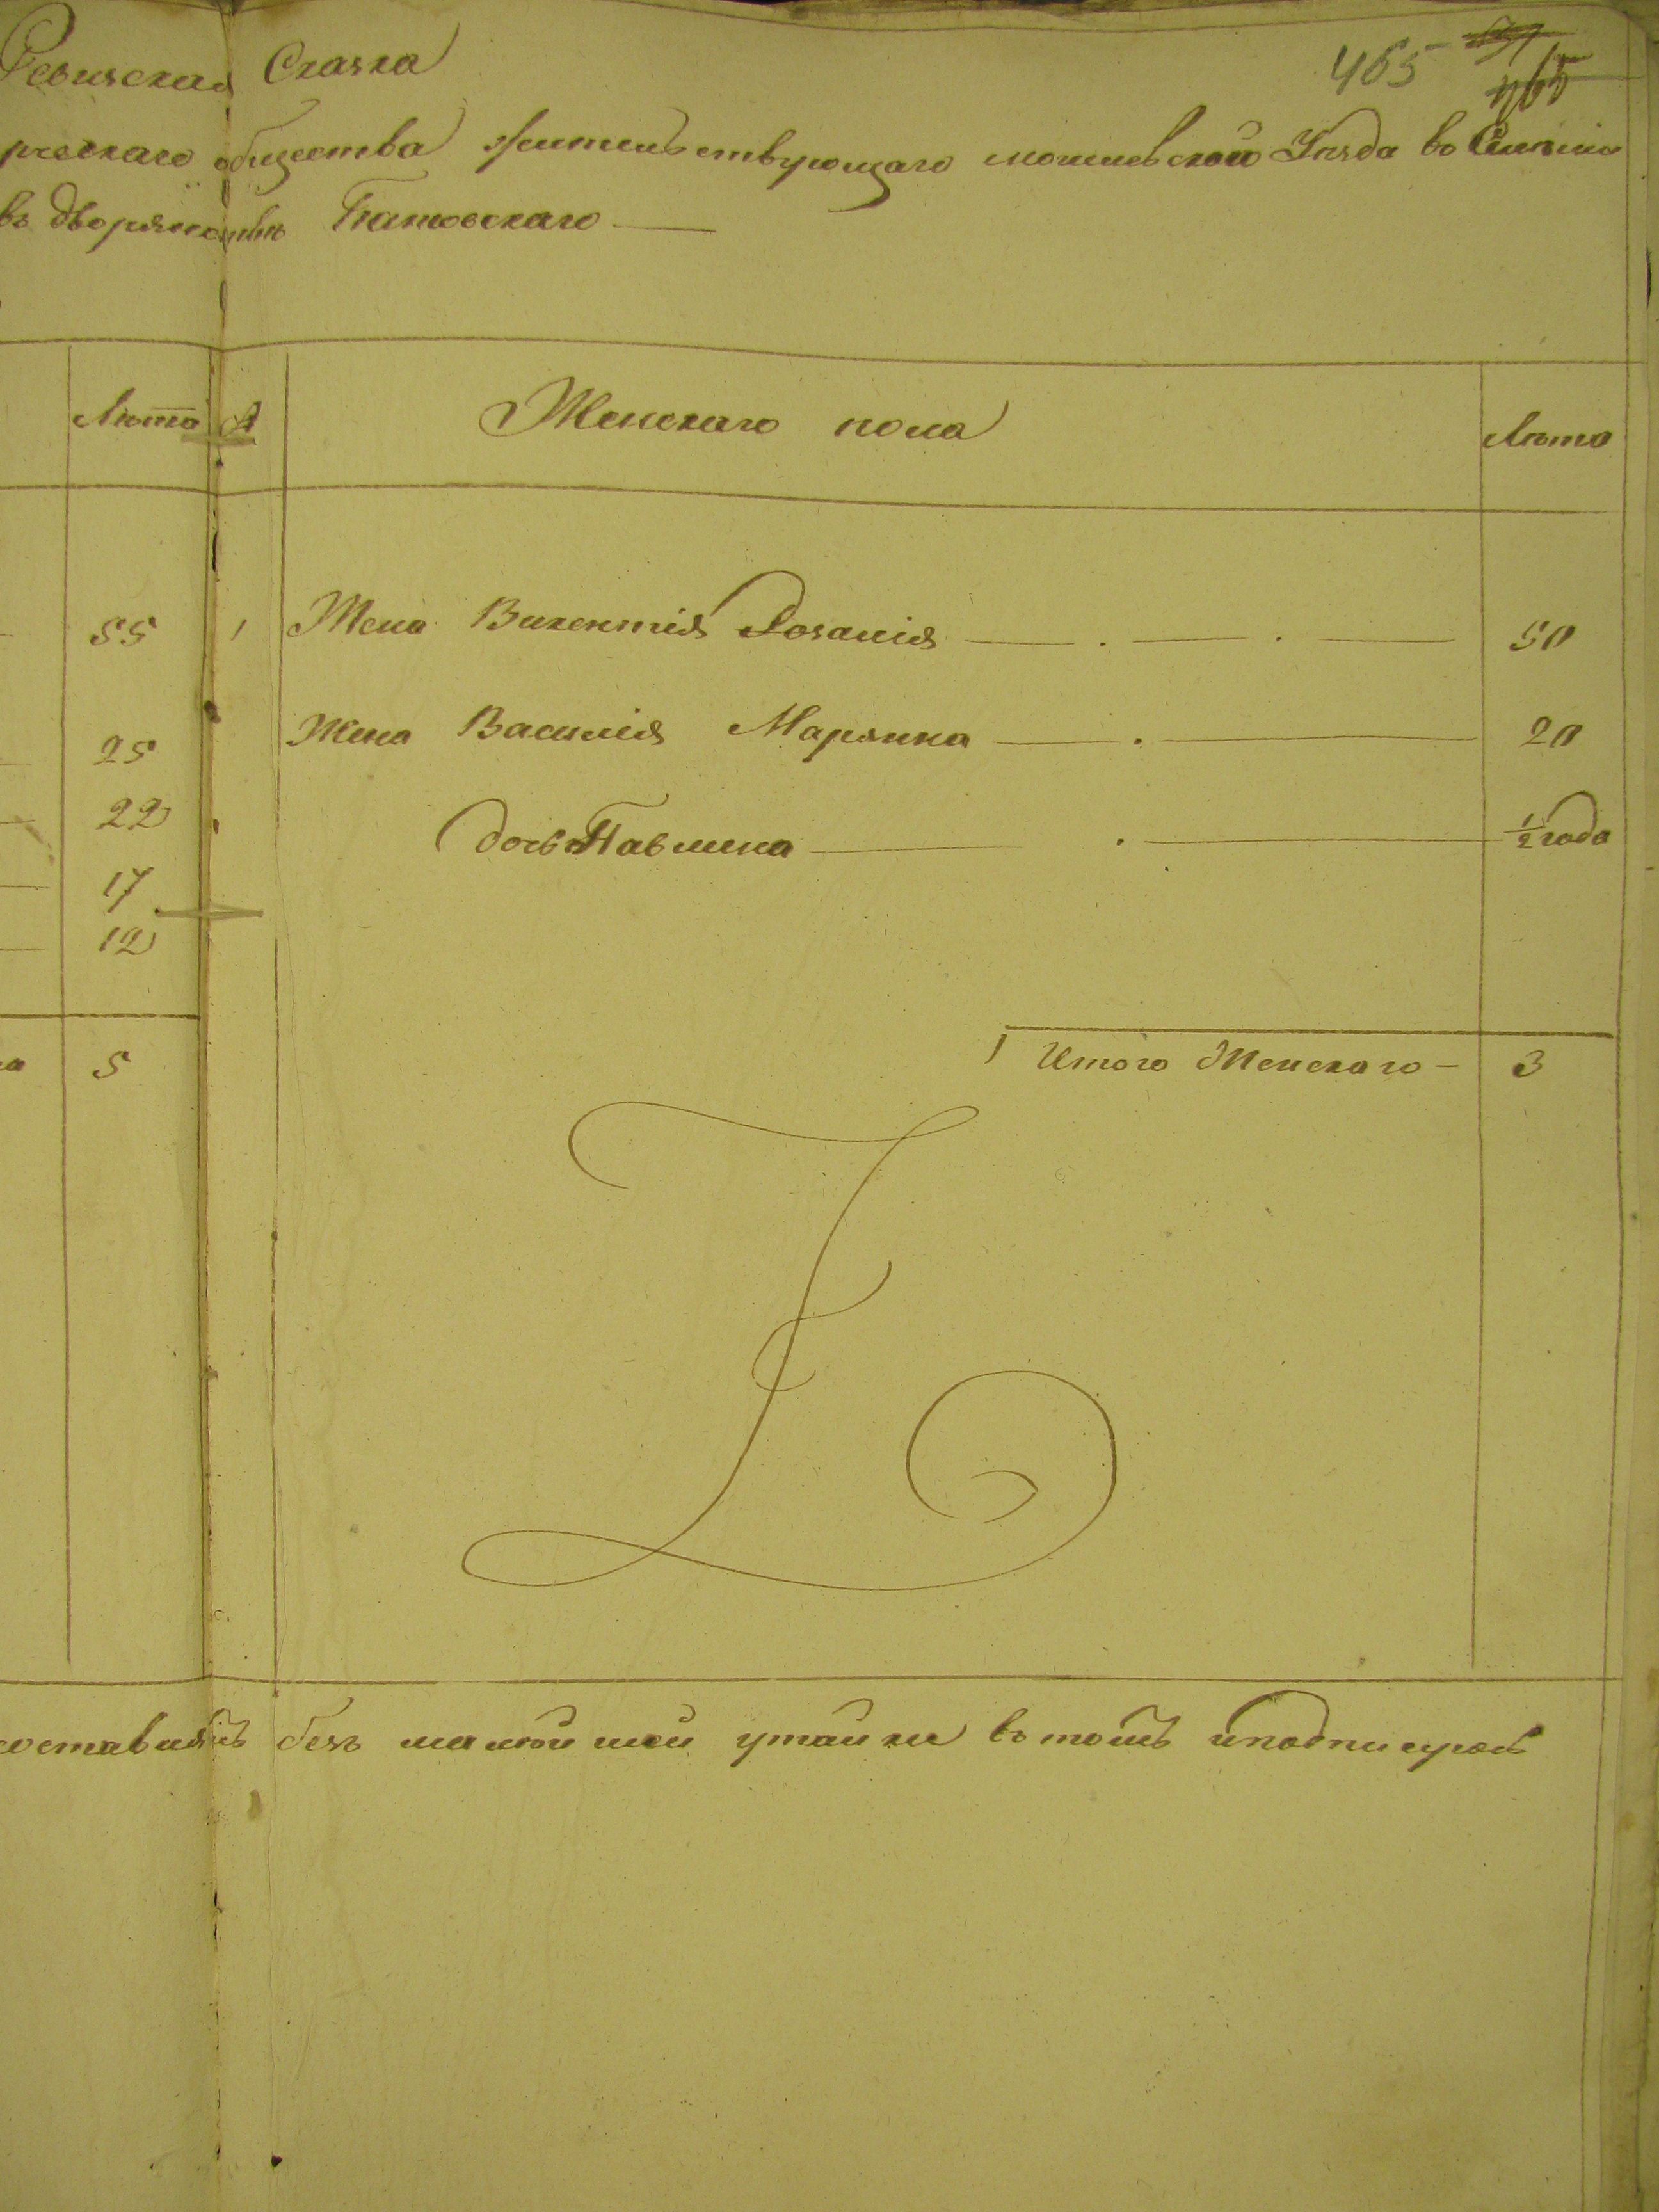 Ревизская Сказка
465
465
рческаго общества жительствующаго могилевской Уезда во
въ дворянстве
Лета № Женскаго пола Лета
55 1 Жена Викентія Розалія 50
25 Жена Василія Марянна 20
22 дочь Павлина ½ года
17
12
5 Итого Женскаго 3
безъ малейшей утайки въ томъ и подписуюсь